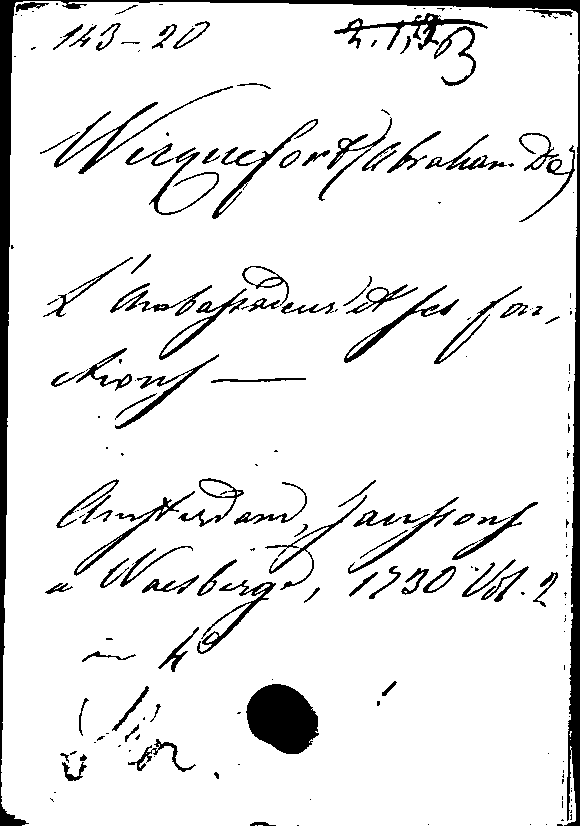 143-20 2.1.
Wicquefort (Abraham De)
L'Ambassadeur et ses fon,
ctions —
Amsterdam, Janssons
a Waesberge, 1730 Vol. 2
in 4º